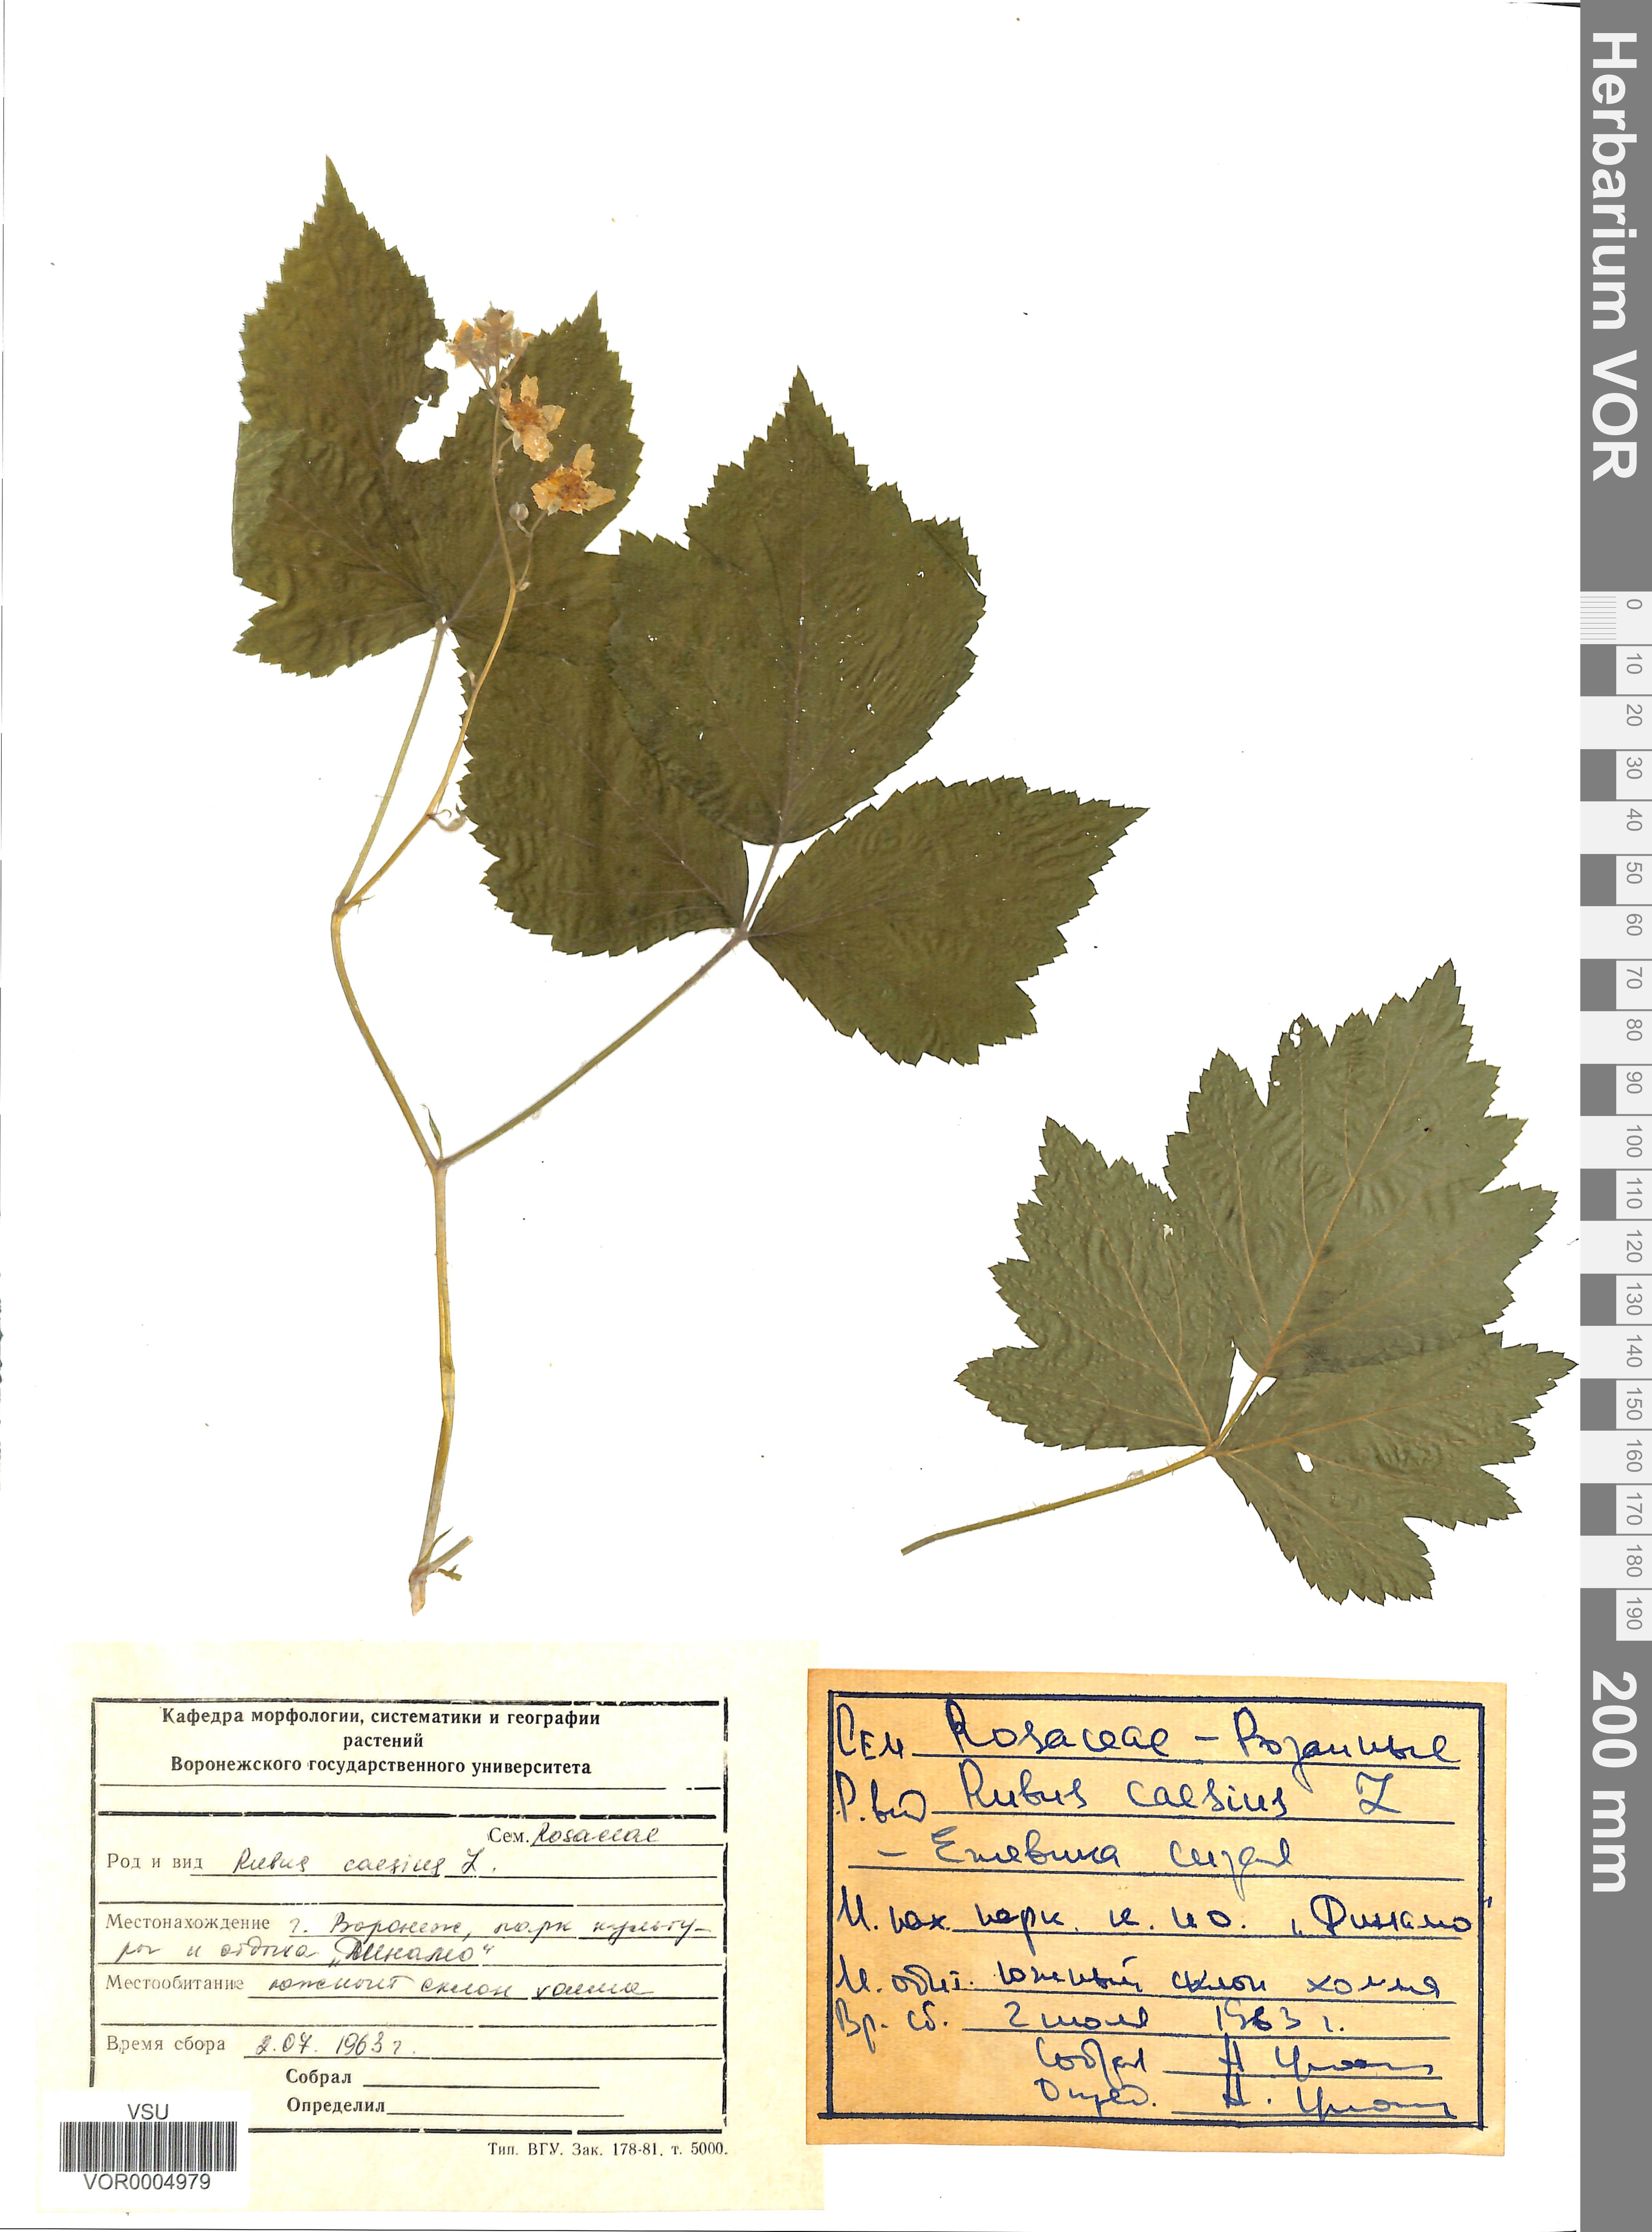 Herbarium VOR
0
10
20
30
40
50
60
70
80
90
100
110
120
130
140
150
160
170
180
190
200 mm
Кафедра морфологии, систематики и географии
растений
Воронежского государственного университета
Сем. Rosaceae
Род и вид Rubus caesius L.
Местонахождение г. Воронеж, парк культу-
ры и отдыха „Динамо“
Местообитание южный склон холма
Время сбора 2.07. 1963 г.
Собрал
Определил
Тип. ВГУ. Зак. 178-81. т. 5000.
VSU
VOR0004979
Сем. Rosaceae – Розанные
Р. вид Rubus caesius L
– Ежевика сизая
М. нах. парк к. и о. „Динамо“
М. обит. южный склон холма
Вр. сб. 2 июля 1963 г.
Собрал Н
Опред. Н.